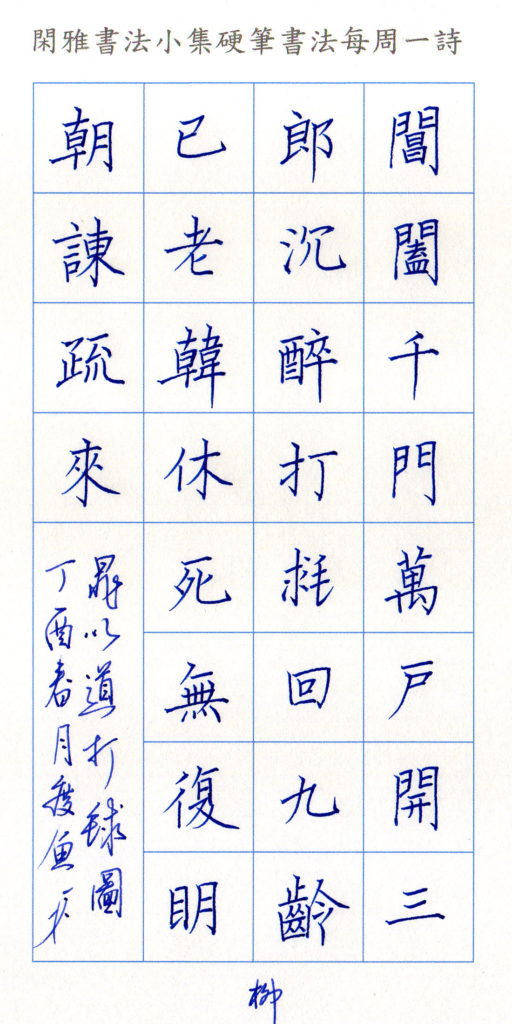 閑雅書法小集硬筆書法每周一詩
閶闔千門萬戶開三
郎沉醉打毬回九齡
已老韓休死無復眀
朝諫疏來
晁以道打毬圖
丁酉春月度魚
柳